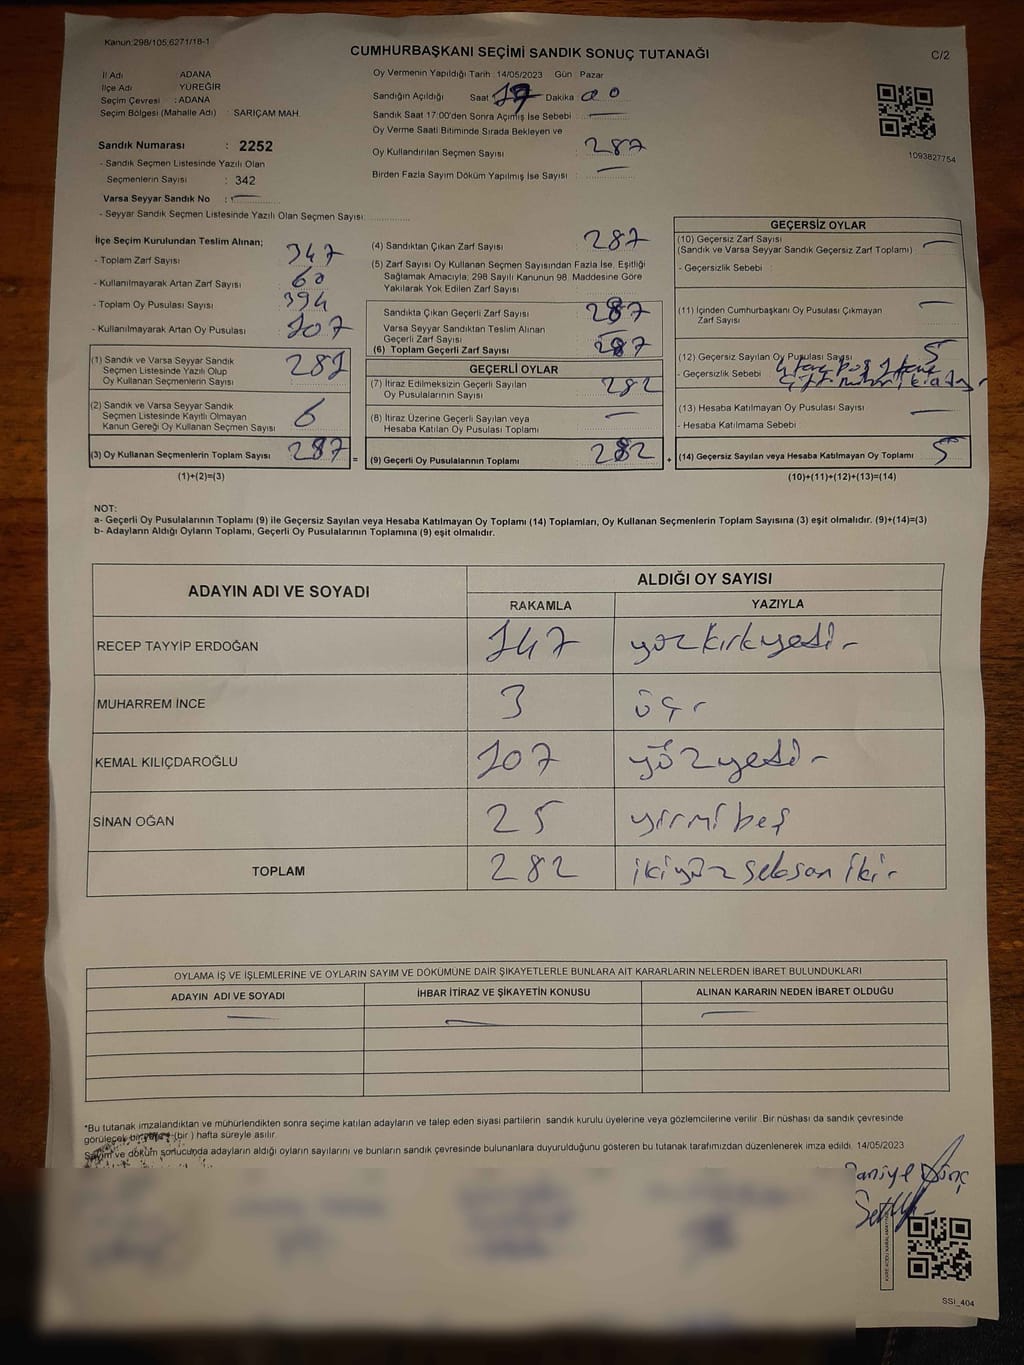 Kanun:298/105,6271/18-1
CUMHURBAŞKANI SEÇİMİ SANDIK SONUÇ TUTANAĞI
C/2
İl Adı : ADANA
İlçe Adı : YÜREĞİR
Seçim Çevresi : ADANA
Seçim Bölgesi (Mahalle Adı) : SARIÇAM MAH
Sandık Numarası : 2252
- Sandık Seçmen Listesinde Yazılı Olan
Seçmenlerin Sayısı : 342
Varsa Seyyar Sandık No : —
- Seyyar Sandık Seçmen Listesinde Yazılı Olan Seçmen Sayısı:
Oy Vermenin Yapıldığı Tarih : 14/05/2023 Gün : Pazar
Sandığın Açıldığı Saat 17 Dakika 00
Sandık Saat 17:00'den Sonra Açılmış İse Sebebi : —
Oy Verme Saati Bitiminde Sırada Bekleyen ve
Oy Kullandırılan Seçmen Sayısı : 287
Birden Fazla Sayım Döküm Yapılmış İse Sayısı : —
1093827754
İlçe Seçim Kurulundan Teslim Alınan;
- Toplam Zarf Sayısı : 347
- Kullanılmayarak Artan Zarf Sayısı : 60
- Toplam Oy Pusulası Sayısı : 394
- Kullanılmayarak Artan Oy Pusulası : 107
(1) Sandık ve Varsa Seyyar Sandık
Seçmen Listesinde Yazılı Olup
Oy Kullanan Seçmenlerin Sayısı : 281
(2) Sandık ve Varsa Seyyar Sandık
Seçmen Listesinde Kayıtlı Olmayan
Kanun Gereği Oy Kullanan Seçmen Sayısı : 6
(3) Oy Kullanan Seçmenlerin Toplam Sayısı : 287 =
(1)+(2)=(3)
(4) Sandıktan Çıkan Zarf Sayısı : 287
(5) Zarf Sayısı Oy Kullanan Seçmen Sayısından Fazla İse, Eşitliği
Sağlamak Amacıyla, 298 Sayılı Kanunun 98. Maddesine Göre
Yakılarak Yok Edilen Zarf Sayısı :
Sandıkta Çıkan Geçerli Zarf Sayısı : 287
Varsa Seyyar Sandıktan Teslim Alınan
Geçerli Zarf Sayısı : —
(6) Toplam Geçerli Zarf Sayısı : 287
GEÇERLİ OYLAR
(7) İtiraz Edilmeksizin Geçerli Sayılan
Oy Pusulalarının Sayısı : 282
(8) İtiraz Üzerine Geçerli Sayılan veya
Hesaba Katılan Oy Pusulası Toplamı : —
(9) Geçerli Oy Pusulalarının Toplamı : 282 +
GEÇERSİZ OYLAR
(10) Geçersiz Zarf Sayısı : —
(Sandık ve Varsa Seyyar Sandık Geçersiz Zarf Toplamı)
- Geçersizlik Sebebi :
(11) İçinden Cumhurbaşkanı Oy Pusulası Çıkmayan : —
Zarf Sayısı
(12) Geçersiz Sayılan Oy Pusulası Sayısı : 5
- Geçersizlik Sebebi
(13) Hesaba Katılmayan Oy Pusulası Sayısı : —
- Hesaba Katılmama Sebebi
(14) Geçersiz Sayılan veya Hesaba Katılmayan Oy Toplamı : 5
(10)+(11)+(12)+(13)=(14)
NOT:
a- Geçerli Oy Pusulalarının Toplamı (9) ile Geçersiz Sayılan veya Hesaba Katılmayan Oy Toplamı (14) Toplamları, Oy Kullanan Seçmenlerin Toplam Sayısına (3) eşit olmalıdır. (9)+(14)=(3)
b- Adayların Aldığı Oyların Toplamı, Geçerli Oy Pusulalarının Toplamına (9) eşit olmalıdır.
ADAYIN ADI VE SOYADI
ALDIĞI OY SAYISI
RAKAMLA YAZIYLA
RECEP TAYYİP ERDOĞAN 147 yüzkırkyedi -
MUHARREM İNCE 3 üç -
KEMAL KILIÇDAROĞLU 107 yüzyedi -
SİNAN OĞAN 25 yirmibeş
TOPLAM 282 ikiyüz seksan iki -
OYLAMA İŞ VE İŞLEMLERİNE VE OYLARIN SAYIM VE DÖKÜMÜNE DAİR ŞİKAYETLERLE BUNLARA AİT KARARLARIN NELERDEN İBARET BULUNDUKLARI
ADAYIN ADI VE SOYADI İHBAR İTİRAZ VE ŞİKAYETİN KONUSU ALINAN KARARIN NEDEN İBARET OLDUĞU
— — —
*Bu tutanak imzalandıktan ve mühürlendikten sonra seçime katılan adayların ve talep eden siyasi partilerin sandık kurulu üyelerine veya gözlemcilerine verilir. Bir nüshası da sandık çevresinde
görülecek bir yere (bir) hafta süreyle asılır.
Sayım ve döküm sonucunda adayların aldığı oyların sayılarını ve bunların sandık çevresinde bulunanlara duyurulduğunu gösteren bu tutanak tarafımızdan düzenlenerek imza edildi. 14/05/2023
SSİ_404